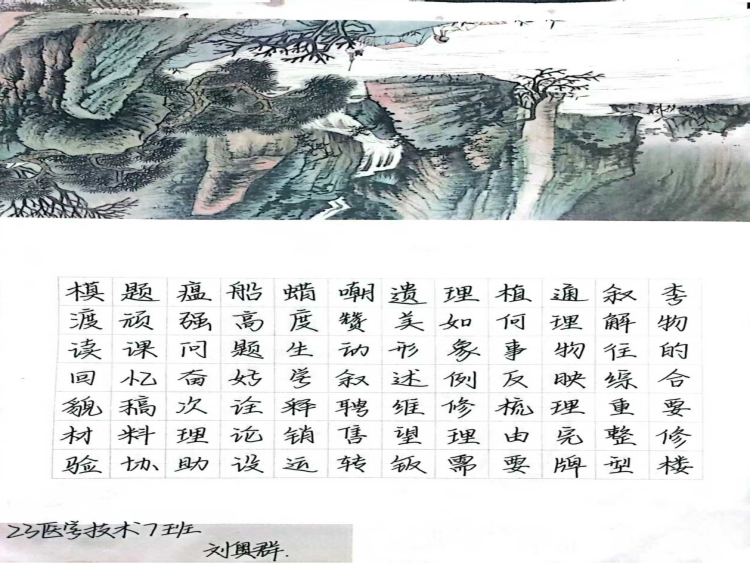 模题瘟船蜡嘲遗理植通叙李
渡顽强高度赞美如何理解物
读课问题生动形象事物往的
回忆奋姑学叙述例反映综合
貌稿次诠释聘维修梳理重要
材料理论销售望理由完整修
验协助设运转钣需要牌型楼
23医学技术7班
刘奥群.